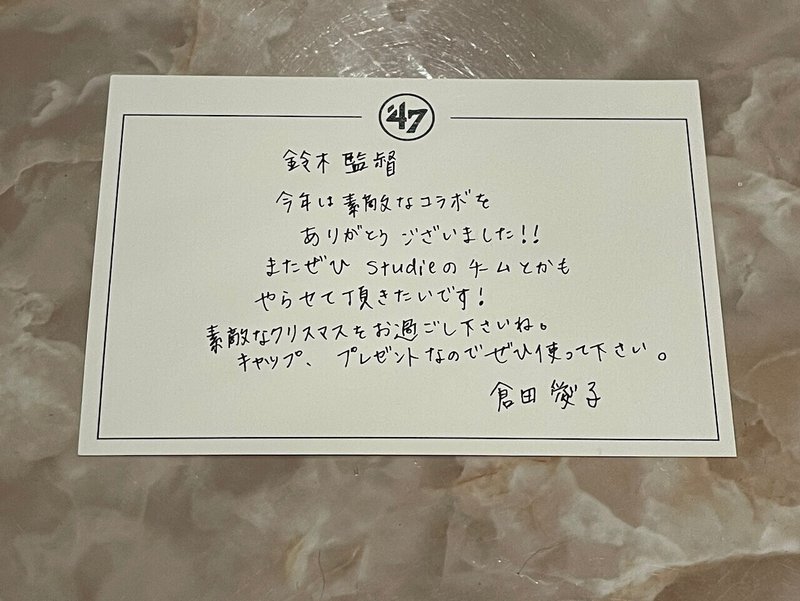 '47
鈴木監督
今年は素敵なコラボを
ありがとうございました!!
またぜひ studieのチームとかも
やらせて頂きたいです!
素敵なクリスマスをお過ごし下さいね。
キャップ、プレゼントなのでぜひ使って下さい。
倉田 愛子